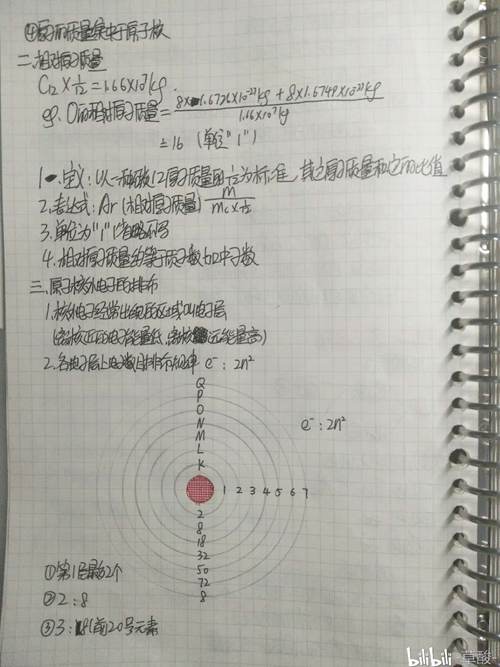 ④原子的质量集中于原子核
二、相对原子质量
C12×1/12=1.66×10⁻²⁷kg
eg. O的相对原子质量=(8×1.6726×10⁻²⁷kg+8×1.6749×10⁻²⁷kg)/(1.66×10⁻²⁷kg)
≈16 (单位"1")
1. 定义:以一种碳12原子质量的1/12为标准,其它原子质量和它的比值
2. 表达式:Ar(相对原子质量) m/(mc×1/12)
3. 单位为"1"省略不写
4. 相对原子质量约等于质子数加中子数
三、原子核外电子的排布
1. 核外电子经常出现的区域叫电子层
(离核近的电子能量低,离核远能量高)
2. 各电子层上电子数目排布规律 e⁻:2n²
Q
P
O
N
M
L
K
e⁻:2n²
1 2 3 4 5 6 7
2
8
18
32
50
72
8
①第1层最多2个
②2:8
③3:8(前20号元素
bilibili 草酸